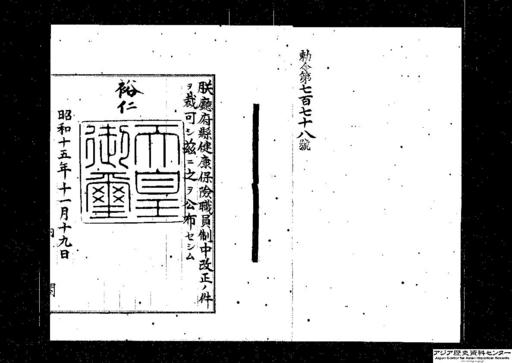 勅令第七百七十八號
朕廳府縣健康保險職員制中改正ノ件
ヲ裁可シ茲ニ之ヲ公布セシム
裕仁
天皇
御璽
昭和十五年十一月十九日
アジア歴史資料センター
Japan Center for Asian Historical Records